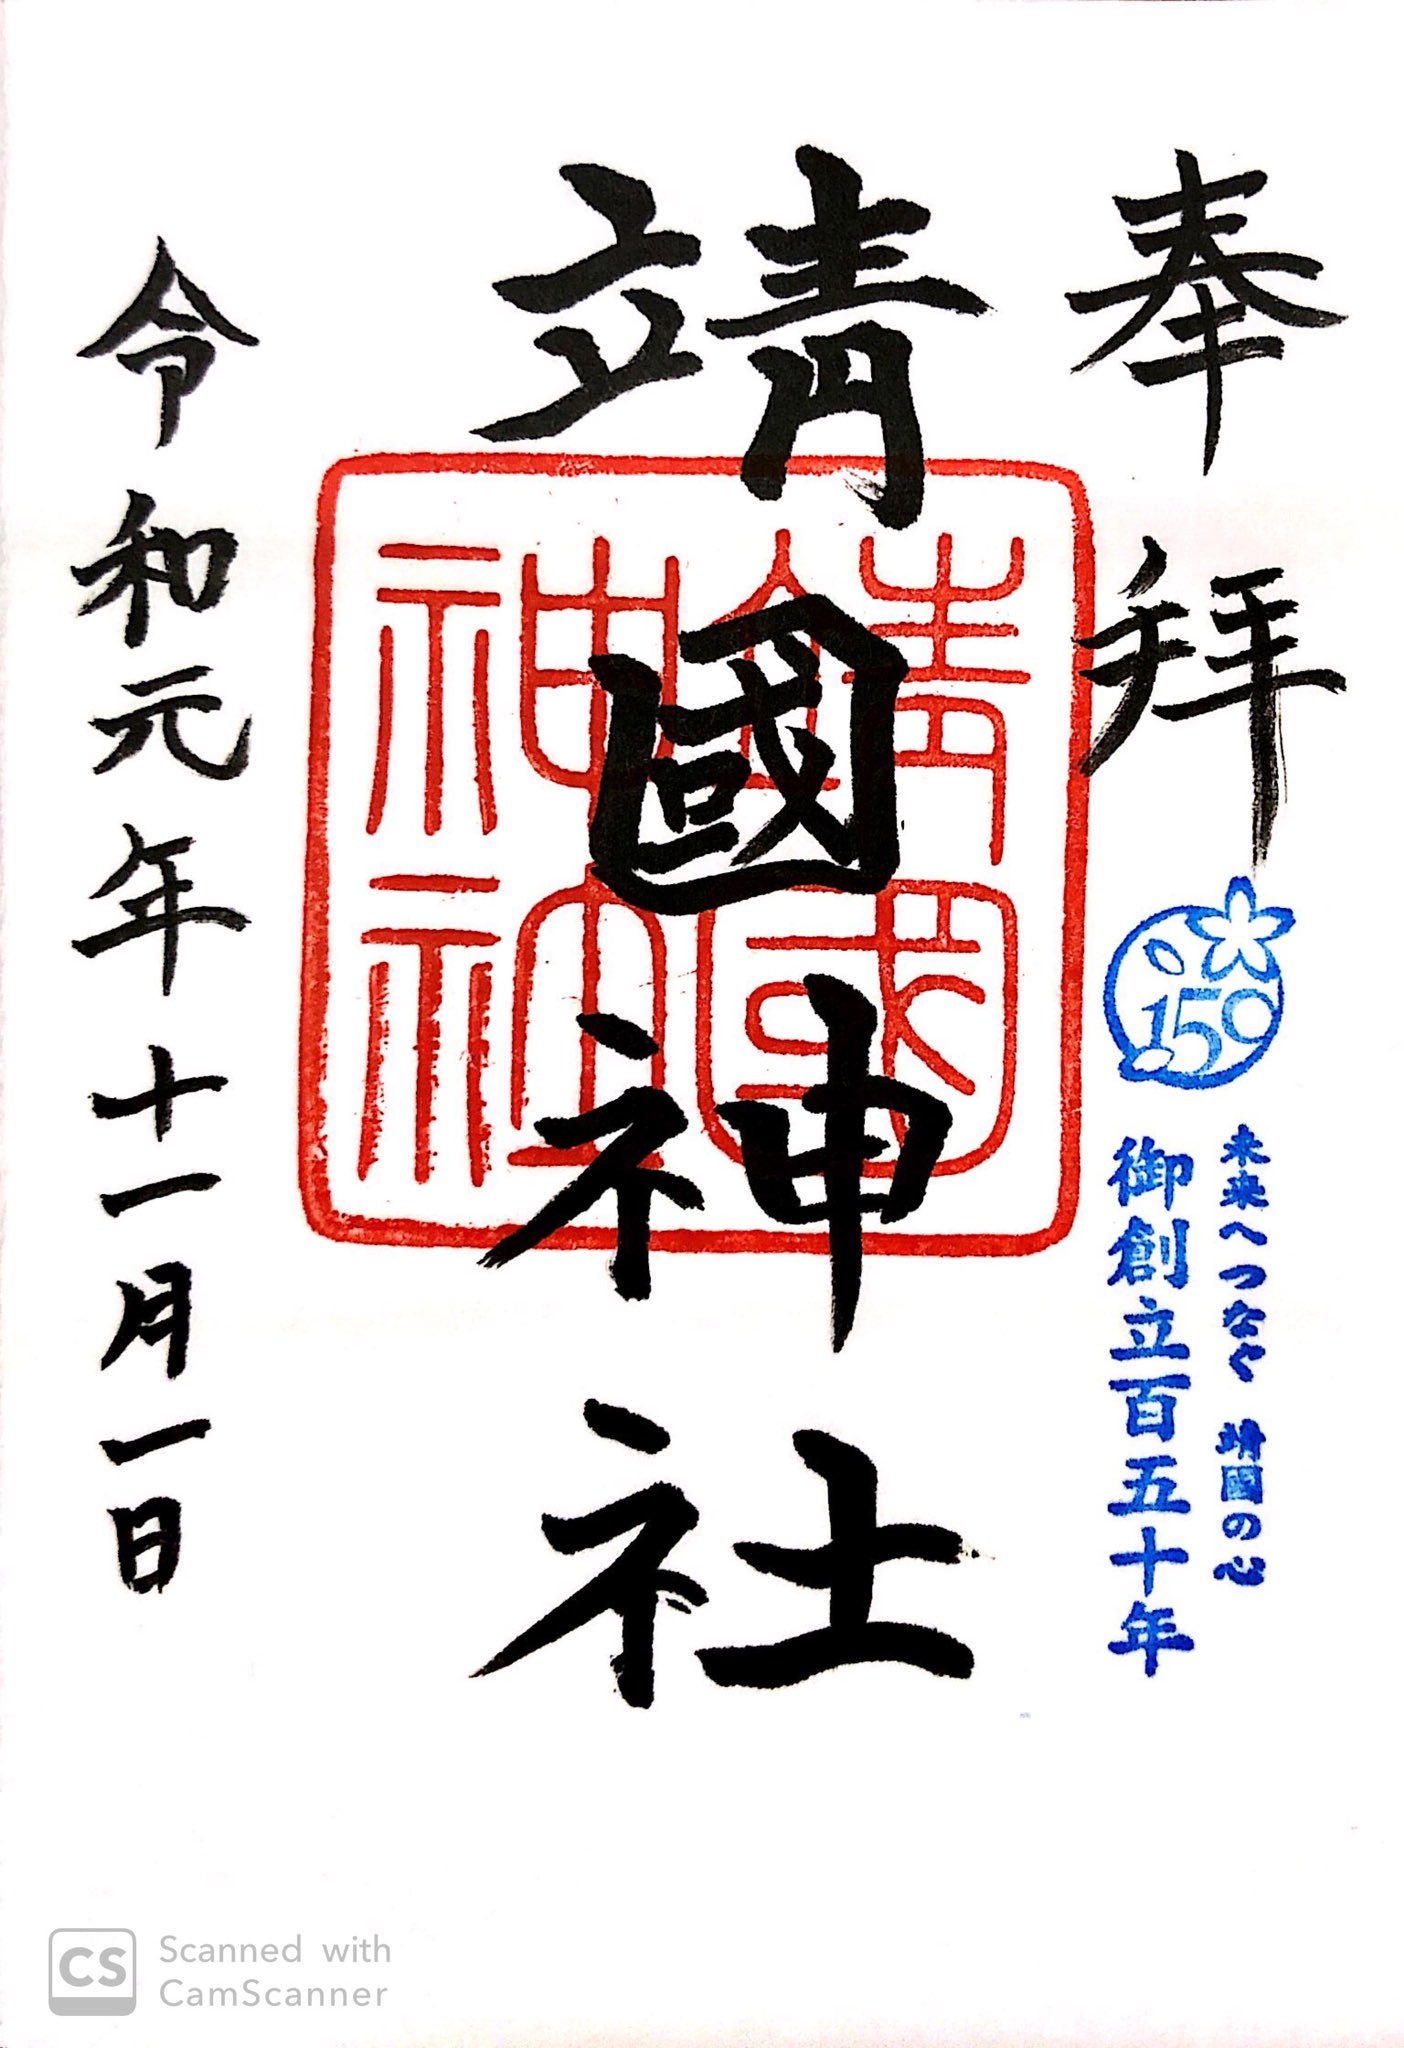 奉拝
150
未来へつなぐ 靖國の心
御創立百五十年
靖國神社
令和元年十一月一日
CS
Scanned with
CamScanner